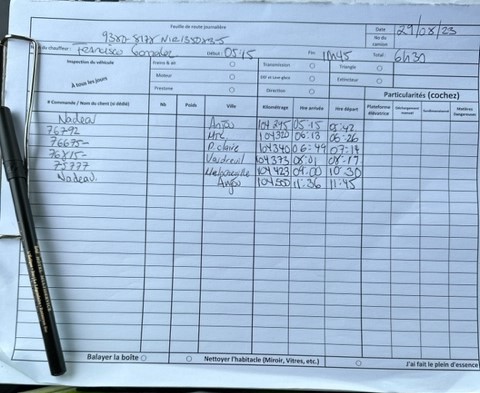 Feuille de route journalière
Date 29/08/23
No du camion
du chauffeur : Francisco Début : 05:15 Fin: 11h45 Total: 6h30
Inspection du véhicule
À tous les jours
Freins à air
Transmission
Triangle
Moteur
Extincteur
Direction
Particularités (cochez)
# Commande / Nom du client (si dédié) Nb Poids Ville Kilométrage Hre arrivée Hre départ Plateforme élévatrice Déchargement manuel Matières Dangereuses
Nadeau Anjou 104295 05:15 05:42
76792 Mtl 104320 06:13 06:26
76675- P. Claire 104340 06:49 07:14
76815- Vaudreuil 104373 08:01 08:17
75777 104423 09:00 10:30
Nadeau Anjou 11:36 11:45
Balayer la boîte Nettoyer l'habitacle (Miroir, Vitres, etc.) J'ai fait le plein d'essence